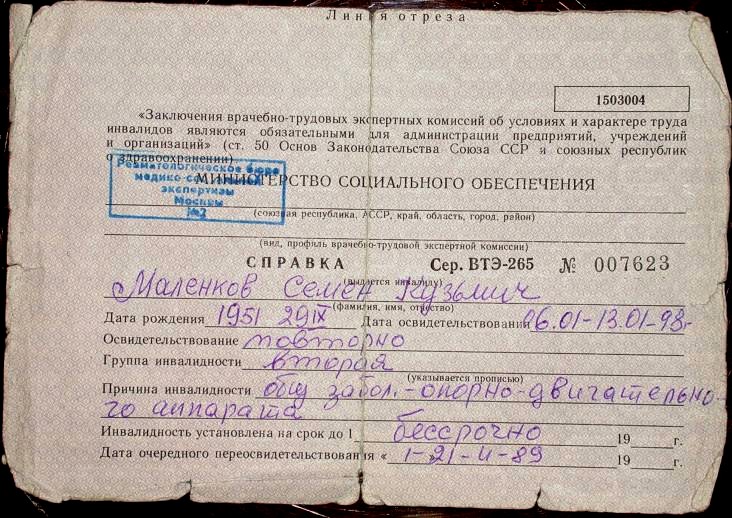 Линия отреза
1503004
«Заключения врачебно-трудовых экспертных комиссий об условиях и характере труда
инвалидов являются обязательными для администрации предприятий, учреждений
и организаций» (ст. 50 Основ Законодательства Союза ССР и союзных республик
о здравоохранении)
Ревматологическое бюро
медико-социальной
экспертизы
Москвы
№2
МИНИСТЕРСТВО СОЦИАЛЬНОГО ОБЕСПЕЧЕНИЯ
(союзная республика, АССР, край, область, город, район)
(вид, профиль врачебно-трудовой экспертной комиссии)
СПРАВКА Сер. ВТЭ-265 № 007623
(выдается инвалиду)
Маленков Семен Кузьмич
(фамилия, имя, отчество)
Дата рождения 1951 29 IX Дата освидетельствования 06.01-13.01-98г
Освидетельствование повторно
Группа инвалидности вторая
(указывается прописью)
Причина инвалидности общ забол.-опорно-двигательно-
го аппарата
Инвалидность установлена на срок до 1 бессрочно 19 г.
Дата очередного переосвидетельствования «
19 г.